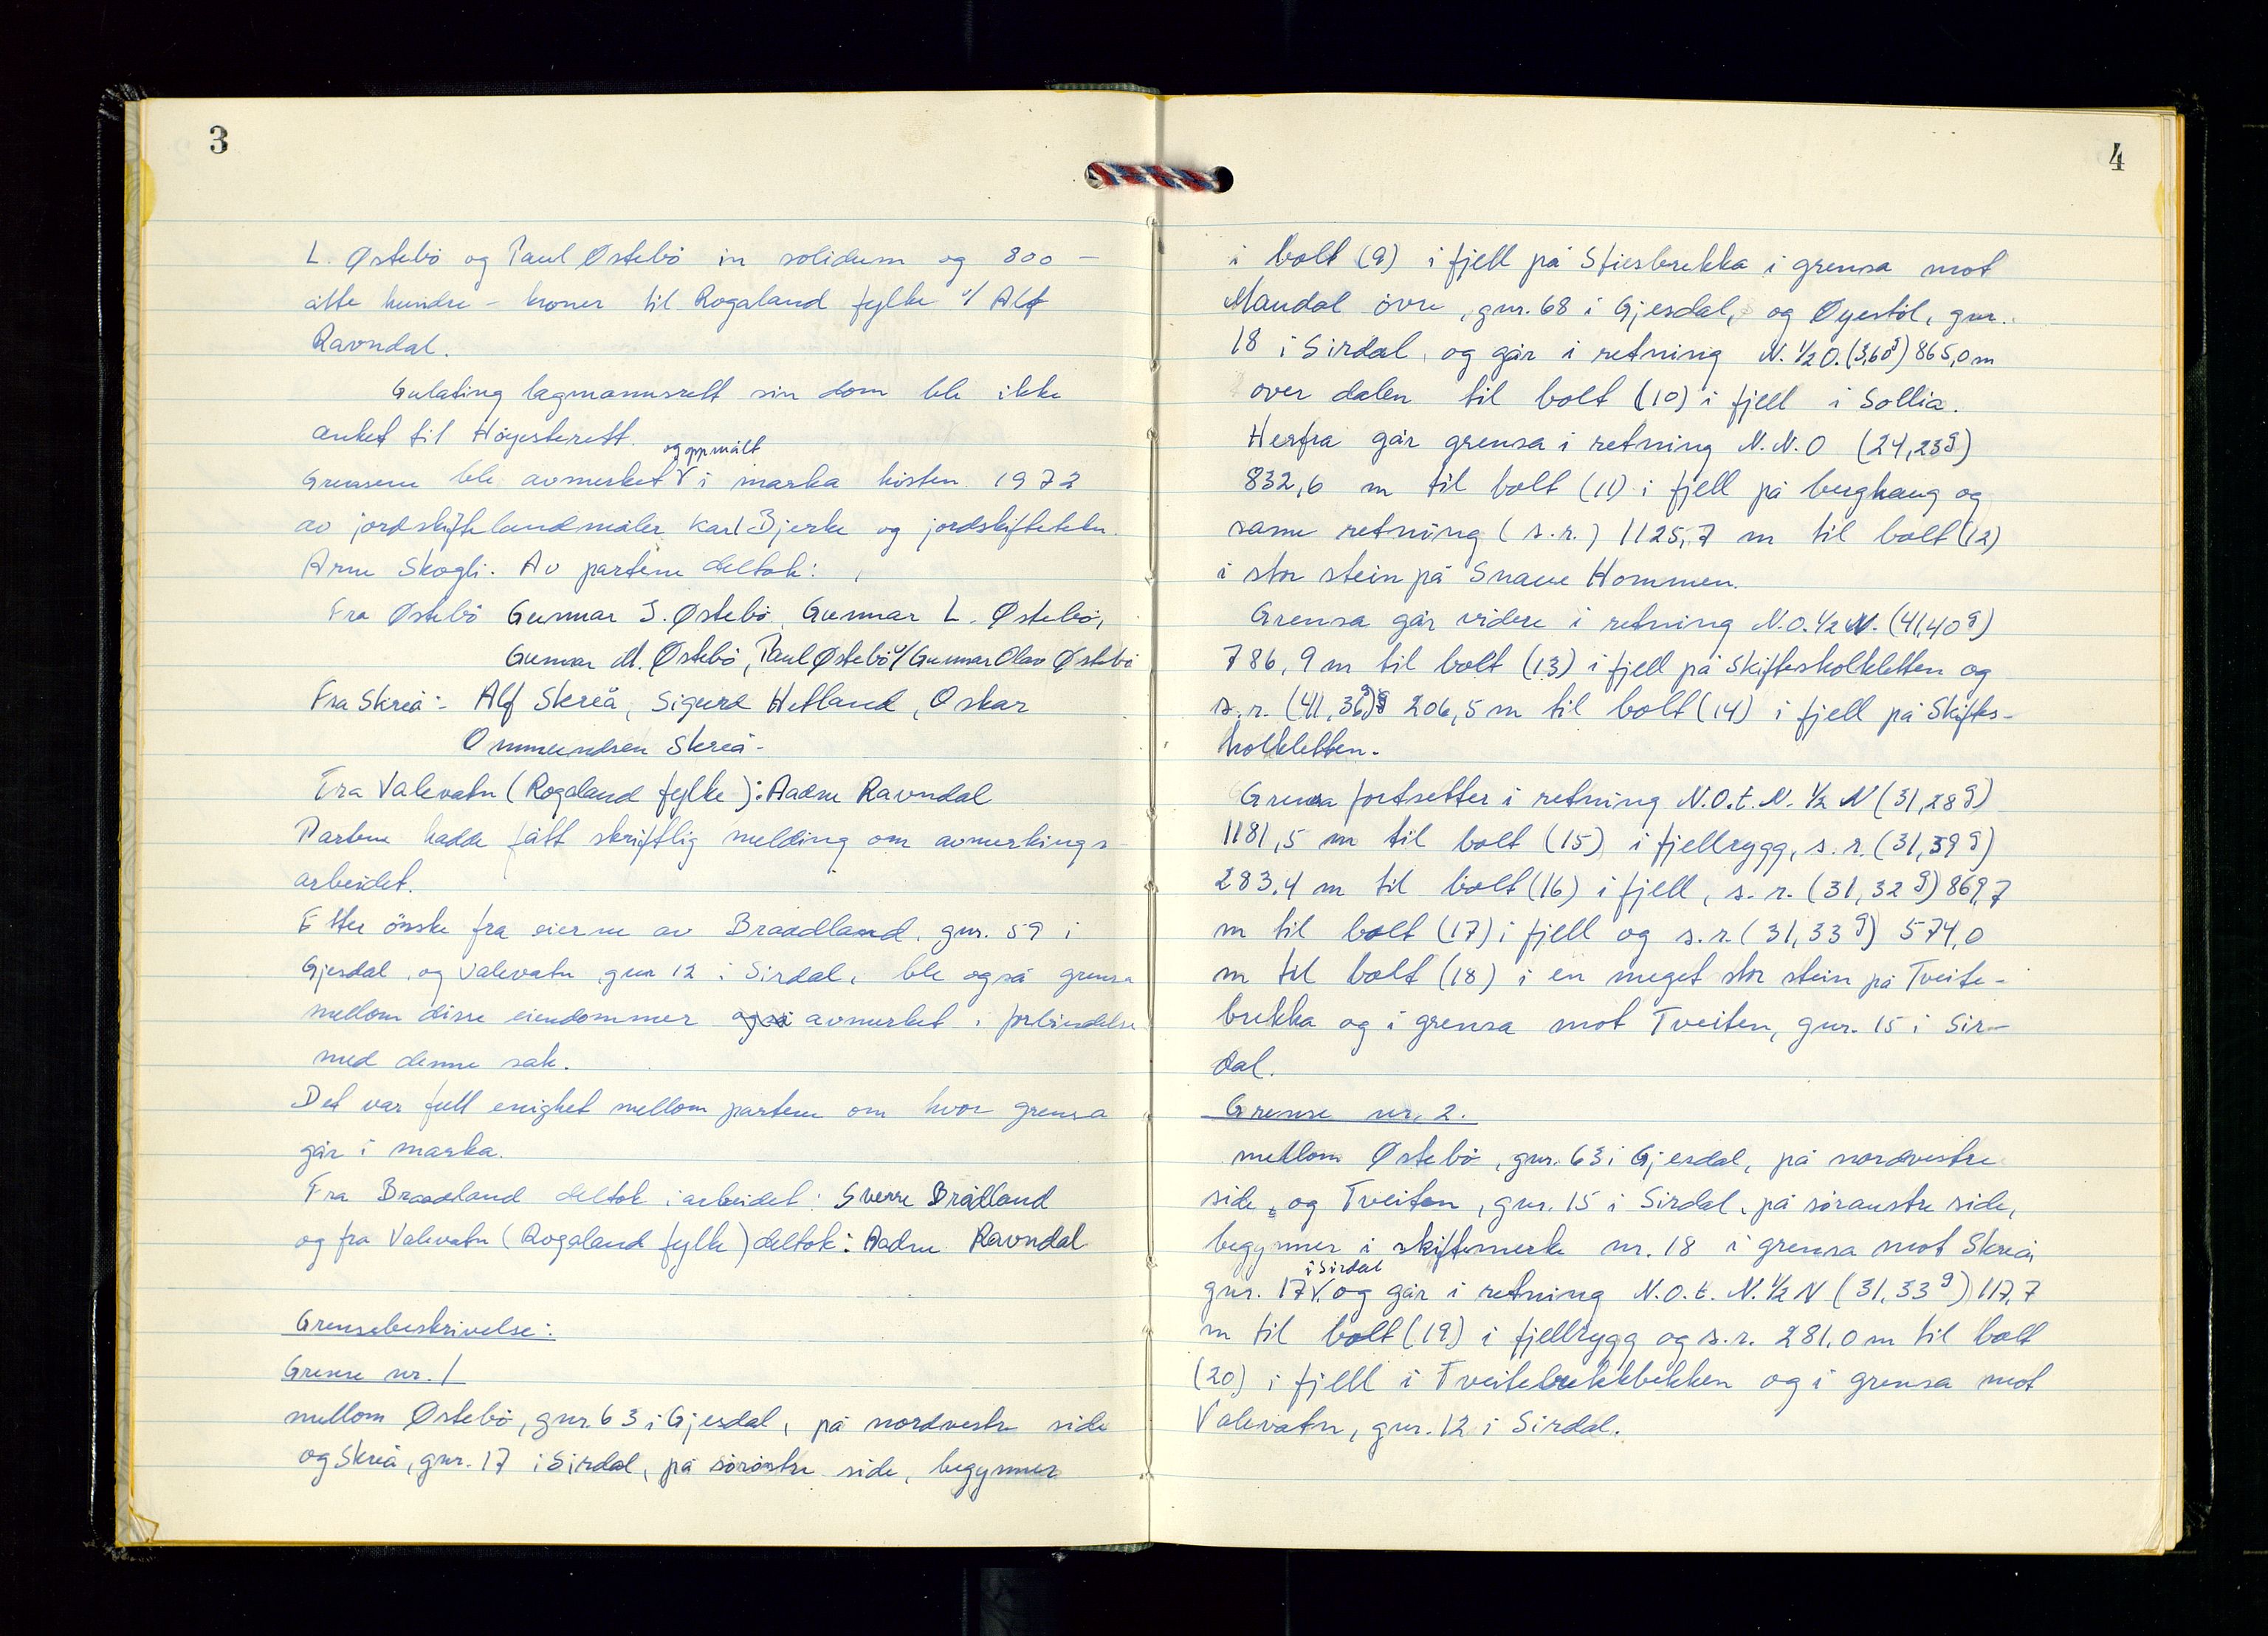 3
L. Østebö og Paul Østebö in solidum og 800 -
åtte hundre - kroner til Rogaland fylke v/ Alf
Ravndal.
Gulating lagmannsrett sin dom ble ikke
anket til Höyesterett.
og oppmålt
Grensene ble avmerket V i marka hösten 1972
av jordskiftelandmåler Karl Bjerke og jordskiftetekn.
Arne Skogli. Av partene deltok:
Fra Østebö Gunnar S. Østebö, Gunnar L. Østebö,
Gunnar M. Østebö, Paul Østebö v/ Gunnar Olav Østebö
Fra Skreå: Alf Skreå, Sigurd Hetland, Oskar
Ommundsen Skreå.
Fra Valevatn (Rogaland fylke): Aadne Ravndal
Partene hadde fått skriftlig melding om avmerkings-
arbeidet.
Etter önske fra eierne av Braadland, gnr. 59 i
Gjesdal, og Valevatn gnr 12 i Sirdal, ble også grensa
mellom disse eiendommer også avmerket i forbindelse
med denne sak.
Det var full enighet mellom partene om hvor grensa
går i marka.
Fra Braadland deltok i arbeidet: Sverre Brådland
og fra Valevatn (Rogaland fylke) deltok: Aadne Ravndal
Grensebeskrivelse:
Grense nr. 1
mellom Østebö, gnr. 63 i Gjesdal, på nordvestre side
og Skreå, gnr. 17 i Sirdal, på söröstre side, begynner
4
i bolt (9) i fjell på Stiesbrekka i grensa mot
Maudal övre, gnr. 68 i Gjesdal, og Øyestöl, gnr.
18 i Sirdal, og går i retning N. 1/2 O. (3,60g) 865,0 m
over dalen til bolt (10) i fjell i Sollia.
Herfra går grensa i retning N.N.O (24,23g)
832,6 m til bolt (11) i fjell på berghaug og
same retning (s.r.) 1125,7 m til bolt (12)
i stor stein på Snaue Hommen.
Grensa går videre i retning N.O. 1/2 N. (41,40g)
786,9 m til bolt (13) i fjell på Skiftesholkletten og
s.r. (41,36g) 206,5 m til bolt (14) i fjell på Skiftes-
holkletten.
Grensa fortsetter i retning N.O.t.N. 1/2 N (31,28g)
1181,5 m til bolt (15) i fjellrygg, s.r. (31,39g)
283,4 m til bolt (16) i fjell, s.r. (31,32g) 869,7
m til bolt (17) i fjell og s.r. (31,33g) 574,0
m til bolt (18) i en meget stor stein på Tveite-
brekka og i grensa mot Tveiten, gnr. 15 i Sir-
dal.
Grense nr. 2.
mellom Østebö, gnr. 63 i Gjesdal, på nordvestre
side, og Tveiten, gnr. 15 i Sirdal, på söraustre side,
begynner i skiftemerke nr. 18 i grensa mot Skreå,
i Sirdal
gnr. 17 V, og går i retning N.O.t. N. 1/2 N (31,33g) 117,7
m til bolt (19) i fjellrygg og s.r. 281,0 m til bolt
(20) i fjell i Tveitebrekkbekken og i grensa mot
Valevatn, gnr. 12 i Sirdal.